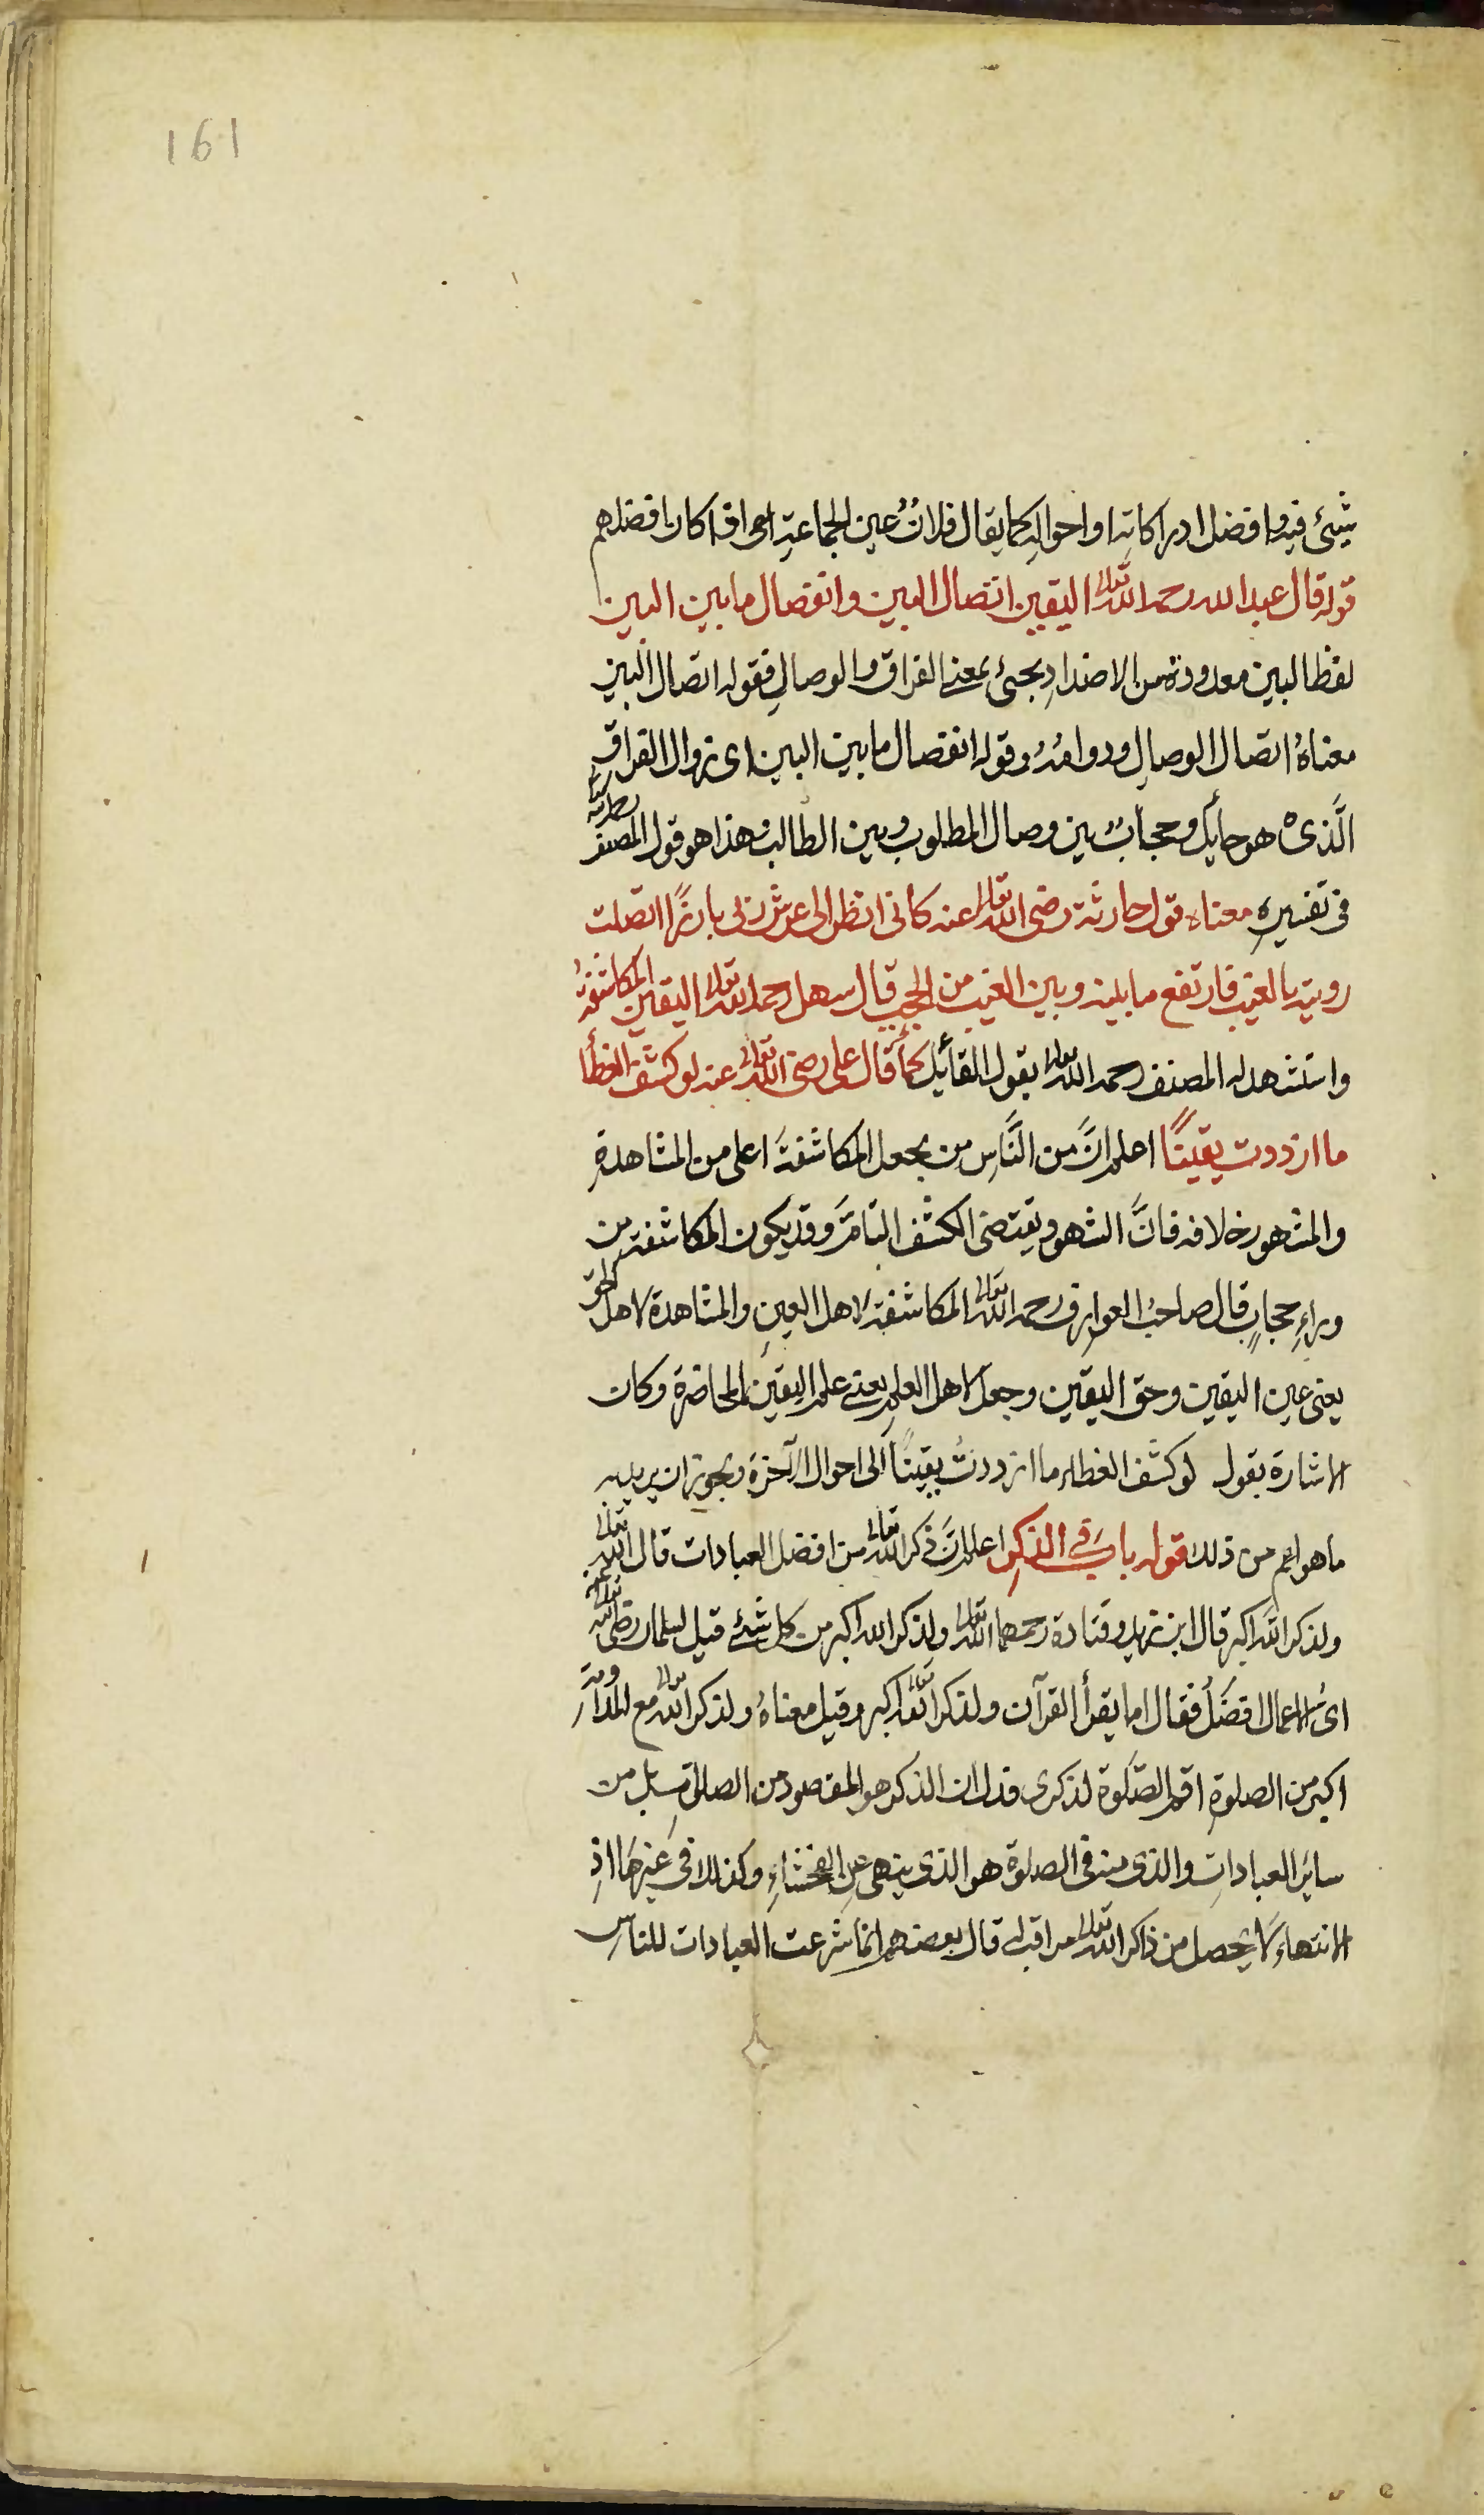 161
شيئ فيه وافضل ادراكاته او احواله كما يقال فلانٌ عين الجماعة اى اذا كان افضلهم
قوله قال عبد الله رحمه الله تعالى اليقين اتصال البين وانفصال ما بين البين
لفظ البين معدودة من الاضدادِ يجئ بمعنى الفراق والوصالِ فقوله اتصال البين
معناهُ اتصال الوصالِ ودوامُهُ وقوله انفصال ما بين البين اى زوال الفراقِ
الَّذى هو حايل وحجابٌ بين وصال المطلوب وبين الطالب هذا هو قول المصنف رحمه الله تعالى
فى تفسيرِه معناه قول حارثة رضى الله تعالى عنه كانى انظر الى عرش ربى بارزًا اتصلت
رويته بالغيب فارتفع ما بينه وبين الغيب من الحجب قال سهل رحمه الله تعالى اليقين المكاشفةُ
واستشهد له المصنف رحمه الله تعالى بقول القائل كما قال على رضى الله تعالى عنه لو كشف الغطأ
ما ازددت يقينًا اعلم انَّ من النَّاسِ من يجعل المكاشفةَ اعلى من المشاهدةِ
والمشهور خلافه فانَّ الشهود يقتضى الكشف التامَّ وقد يكون المكاشفة من
وراءِ حجابٍ قال صاحبُ العوارف رحمه الله تعالى المكاشفة لاهل العينِ والمشاهدة لاهل الحق
يعنى عين اليقين وحق اليقين وجعل لاهل العلمِ يعنى علم اليقين المحاضرة وكان
الاشارة بقول لو كشف الغطاء ما ازددتُ يقينًا الى احوال الآخرة ويجوز ان يريد به
ما هو اعم من ذلك قوله باب فى الذكرِ اعلم انَّ ذكر الله تعالى من افضل العبادات قال الله تعالى
ولذكر الله اكبر قال ابن زيد وقتادة رحمهما الله تعالى ولذكر الله اكبر من كل شئ قيل لسلمان رضى الله تعالى عنه
اىّ الاعمال افضلُ فقال اما يقرأ القرآن ولذكر الله تعالى اكبر وقيل معناهُ ولذكر الله تعالى مع المداومة
اكبر من الصلوةِ اقم الصَّلوة لذكرى فدل ان الذكر هو المقصود من الصلوة بل من
ساير العباداتِ والذى منه فى الصلوة هو الذى ينهى عن الفحشاءِ وكذلك فى غيرها اذِ
الانتهاء لا يحصل من ذاكر الله تعالى مراقب له قال بعضهم انما شرعت العبادات للناس